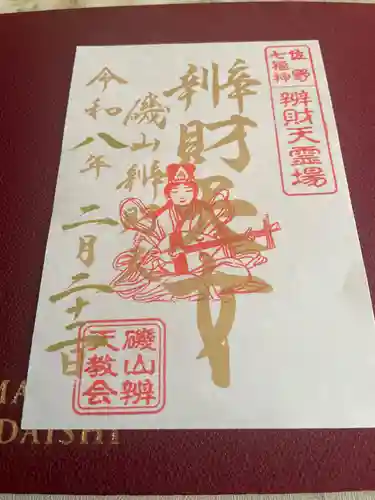 佐野
七福神
辨財天霊場
辨財天
磯山辨
令和八年
二月二十二日
磯山辨
天教会
MA
DAISHI